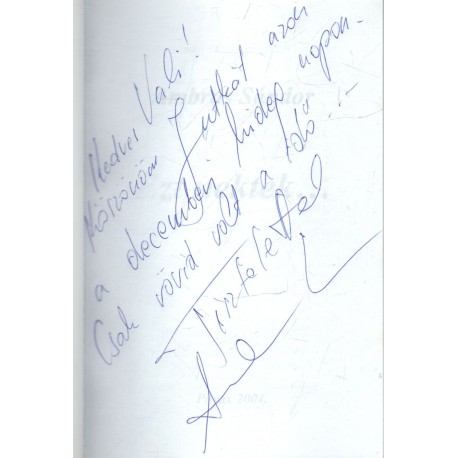 Kedves Vali!
Köszönöm Jutkát azon
a decemberi hideg napon.
Csak rövid volt a idő!
Tisztelettel